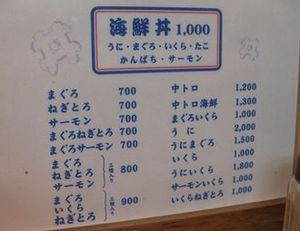 海鮮丼 1,000
うに・まぐろ・いくら・たこ
かんぱち・サーモン
まぐろ 700
ねぎとろ 700
サーモン 700
まぐろねぎとろ 700
まぐろサーモン 700
まぐろ
ねぎとろ
サーモン
800
まぐろ
いくら
ねぎとろ
900
中トロ 1,200
中トロ海鮮 1,300
まぐろいくら 1,000
うに 2,000
うにまぐろ 1,500
いくら 1,000
うにいくら 1,800
サーモンいくら 1,000
いくらねぎとろ 1,000